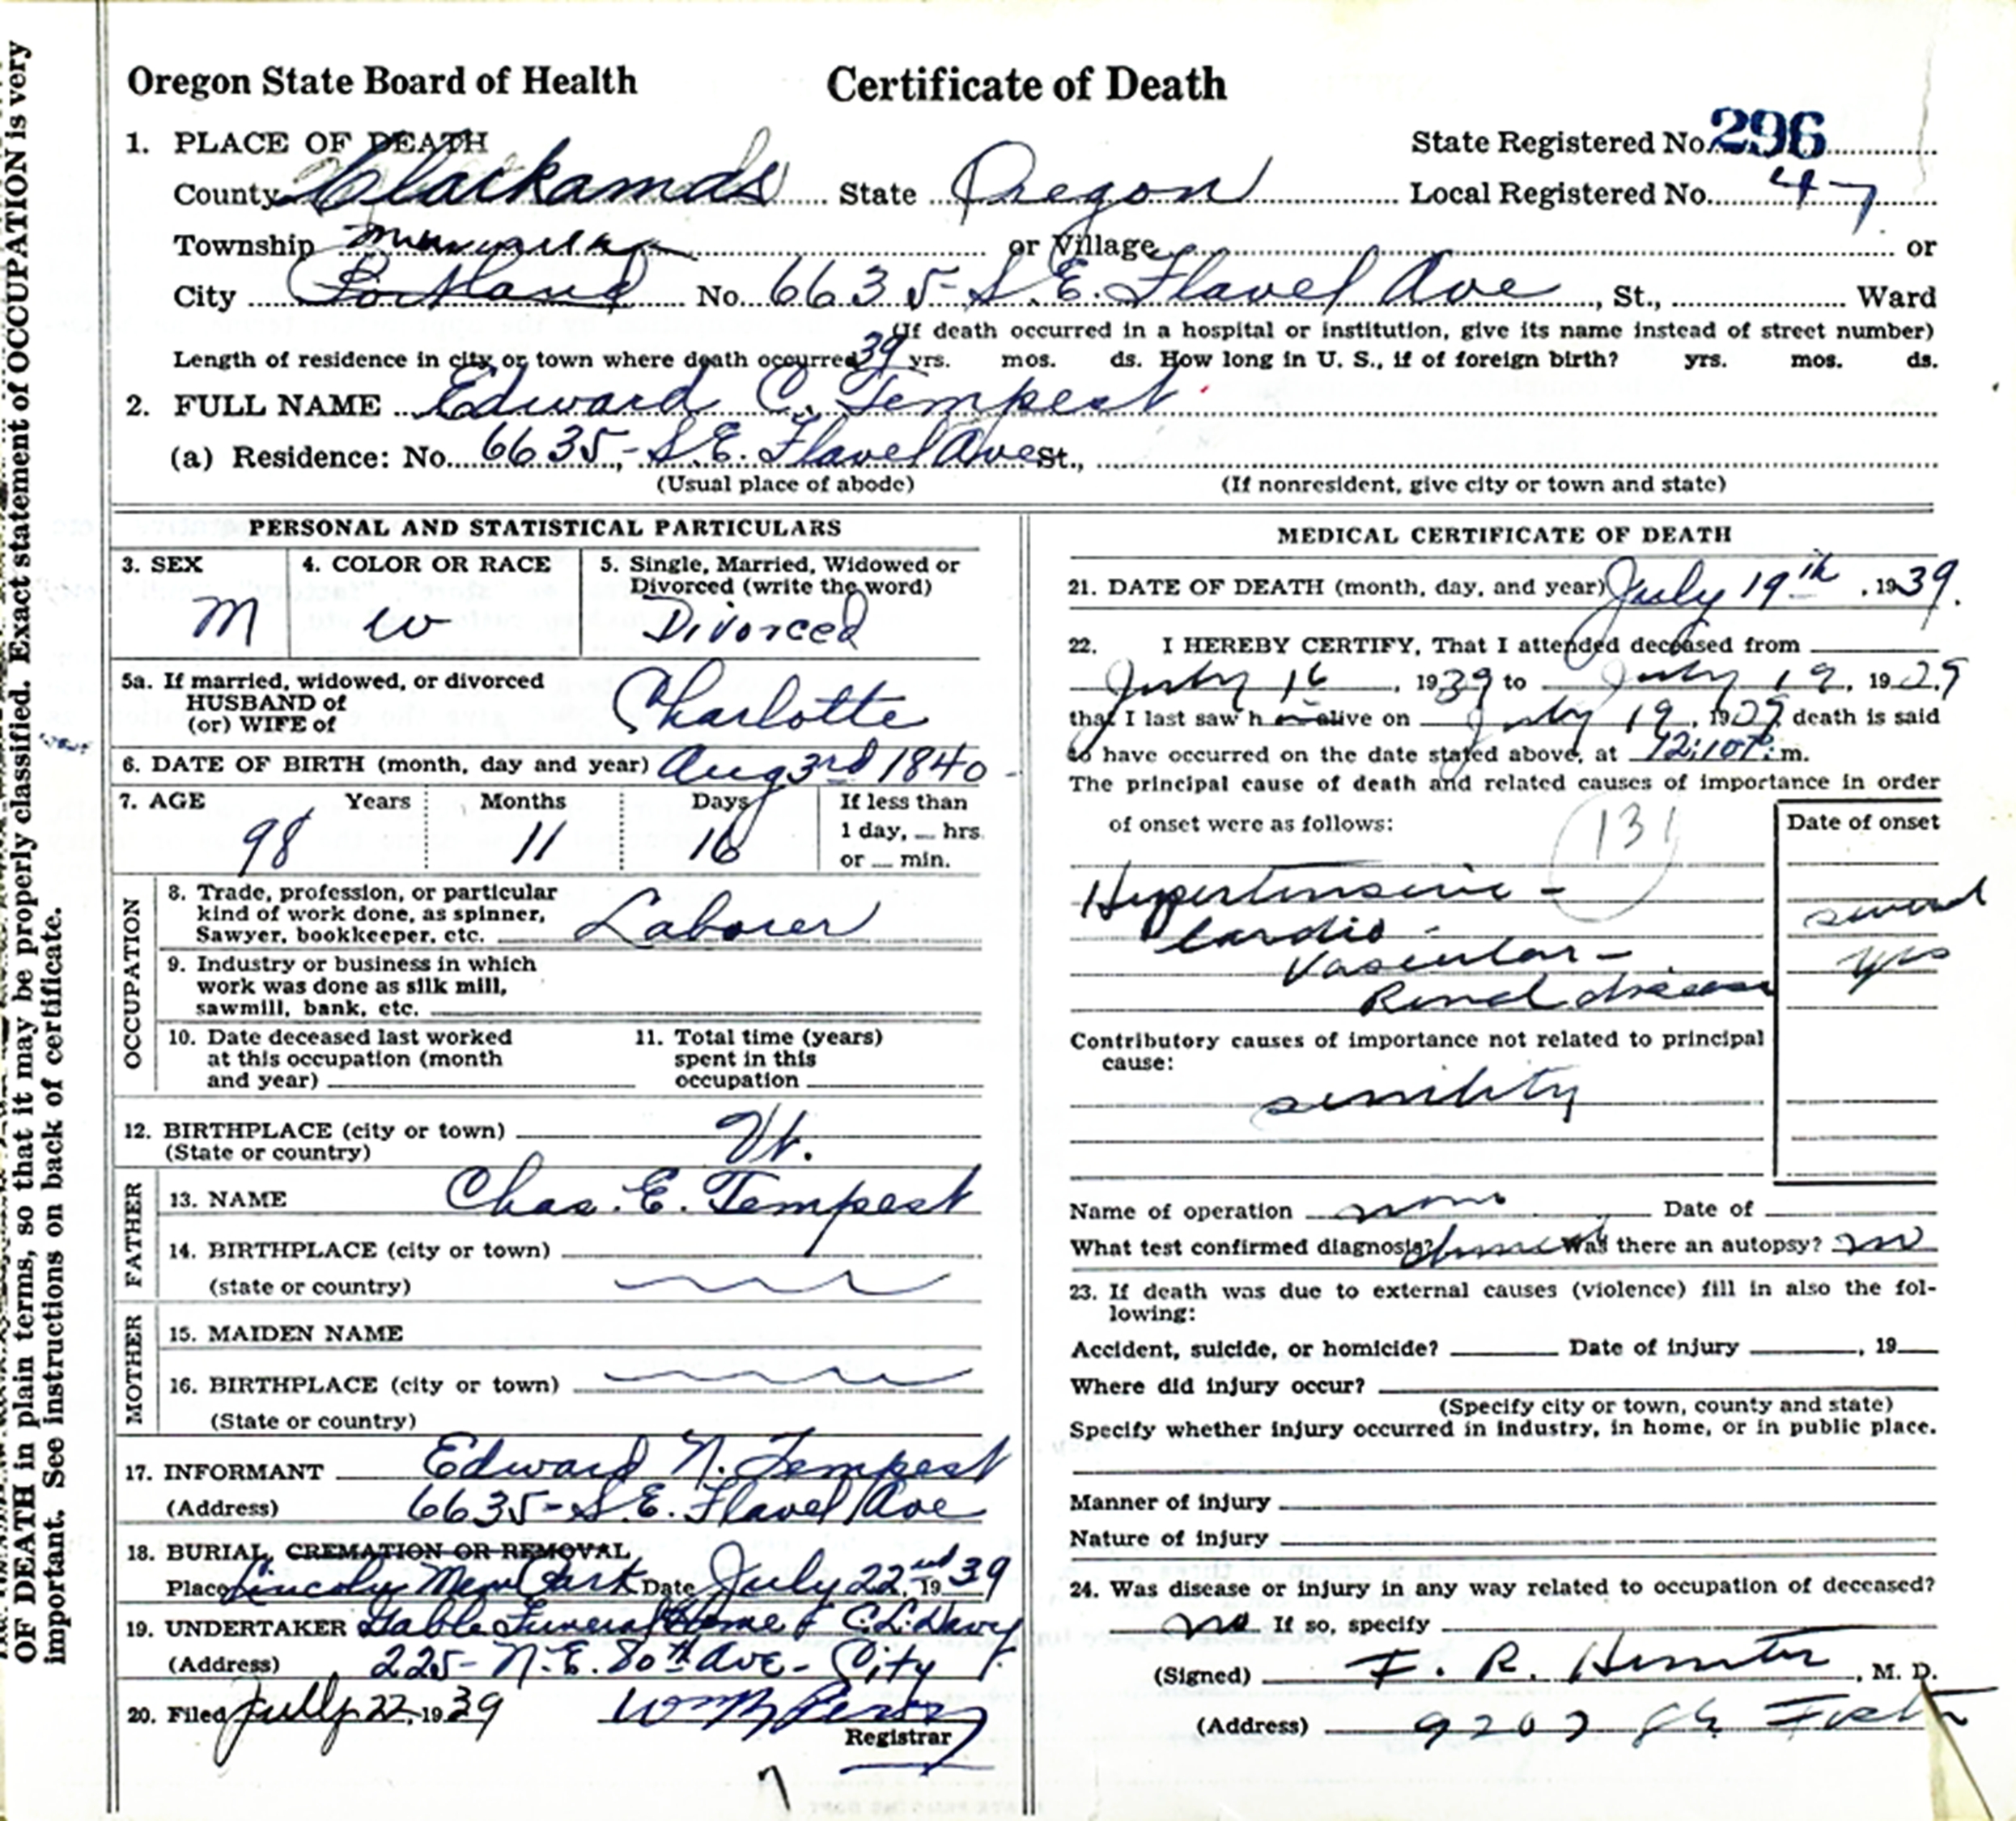 OF DEATH in plain terms, so that it may be properly classified. Exact statement of OCCUPATION is very
important. See instructions on back of certificate.
Oregon State Board of Health Certificate of Death
1. PLACE OF DEATH State Registered No. 296
County Clackamas State Oregon Local Registered No. 47
Township or Village or
City Portland No. 6635 - S.E. Flavel Ave, St., Ward
(If death occurred in a hospital or institution, give its name instead of street number)
Length of residence in city or town where death occurred 39 yrs. mos. ds. How long in U. S., if of foreign birth? yrs. mos. ds.
2. FULL NAME Edward C. Tempest
(a) Residence: No. 6635 - S.E. Flavel Ave St.,
(Usual place of abode) (If nonresident, give city or town and state)
PERSONAL AND STATISTICAL PARTICULARS
3. SEX 4. COLOR OR RACE 5. Single, Married, Widowed or
Divorced (write the word)
M W Divorced
5a. If married, widowed, or divorced
HUSBAND of
(or) WIFE of Charlotte
6. DATE OF BIRTH (month, day and year) Aug 3rd 1840 -
7. AGE Years Months Days If less than
98 11 16 1 day, hrs.
or min.
OCCUPATION
8. Trade, profession, or particular
kind of work done, as spinner,
Sawyer, bookkeeper, etc. Laborer
9. Industry or business in which
work was done as silk mill,
sawmill, bank, etc.
10. Date deceased last worked 11. Total time (years)
at this occupation (month spent in this
and year) occupation
12. BIRTHPLACE (city or town) Vt.
(State or country)
FATHER
13. NAME Chas. E. Tempest
14. BIRTHPLACE (city or town)
(state or country)
MOTHER
15. MAIDEN NAME
16. BIRTHPLACE (city or town)
(State or country)
17. INFORMANT Edward N. Tempest
(Address) 6635 - S.E. Flavel Ave
18. BURIAL, CREMATION OR REMOVAL
Place Lincoln Mem Park Date July 22nd, 1939
19. UNDERTAKER Gable Funeral Home
(Address) 225 - N.E. 80th Ave - City
20. Filed July 22, 1939
Registrar
MEDICAL CERTIFICATE OF DEATH
21. DATE OF DEATH (month, day, and year) July 19th, 1939.
22. I HEREBY CERTIFY, That I attended deceased from
July 16, 1939 to July 19, 1939
that I last saw h alive on July 19, 1939, death is said
to have occurred on the date stated above, at 12:10 P. m.
The principal cause of death and related causes of importance in order
of onset were as follows: 131 Date of onset
Hypertensive -
Cardio - several
Vascular - yrs
Renal disease
Contributory causes of importance not related to principal
cause:
senility
Name of operation none Date of
What test confirmed diagnosis? Was there an autopsy? no
23. If death was due to external causes (violence) fill in also the fol-
lowing:
Accident, suicide, or homicide? Date of injury , 19
Where did injury occur?
(Specify city or town, county and state)
Specify whether injury occurred in industry, in home, or in public place.
Manner of injury
Nature of injury
24. Was disease or injury in any way related to occupation of deceased?
no If so, specify
(Signed) F. R. Hunter, M. D.
(Address) 9207 SE Foster